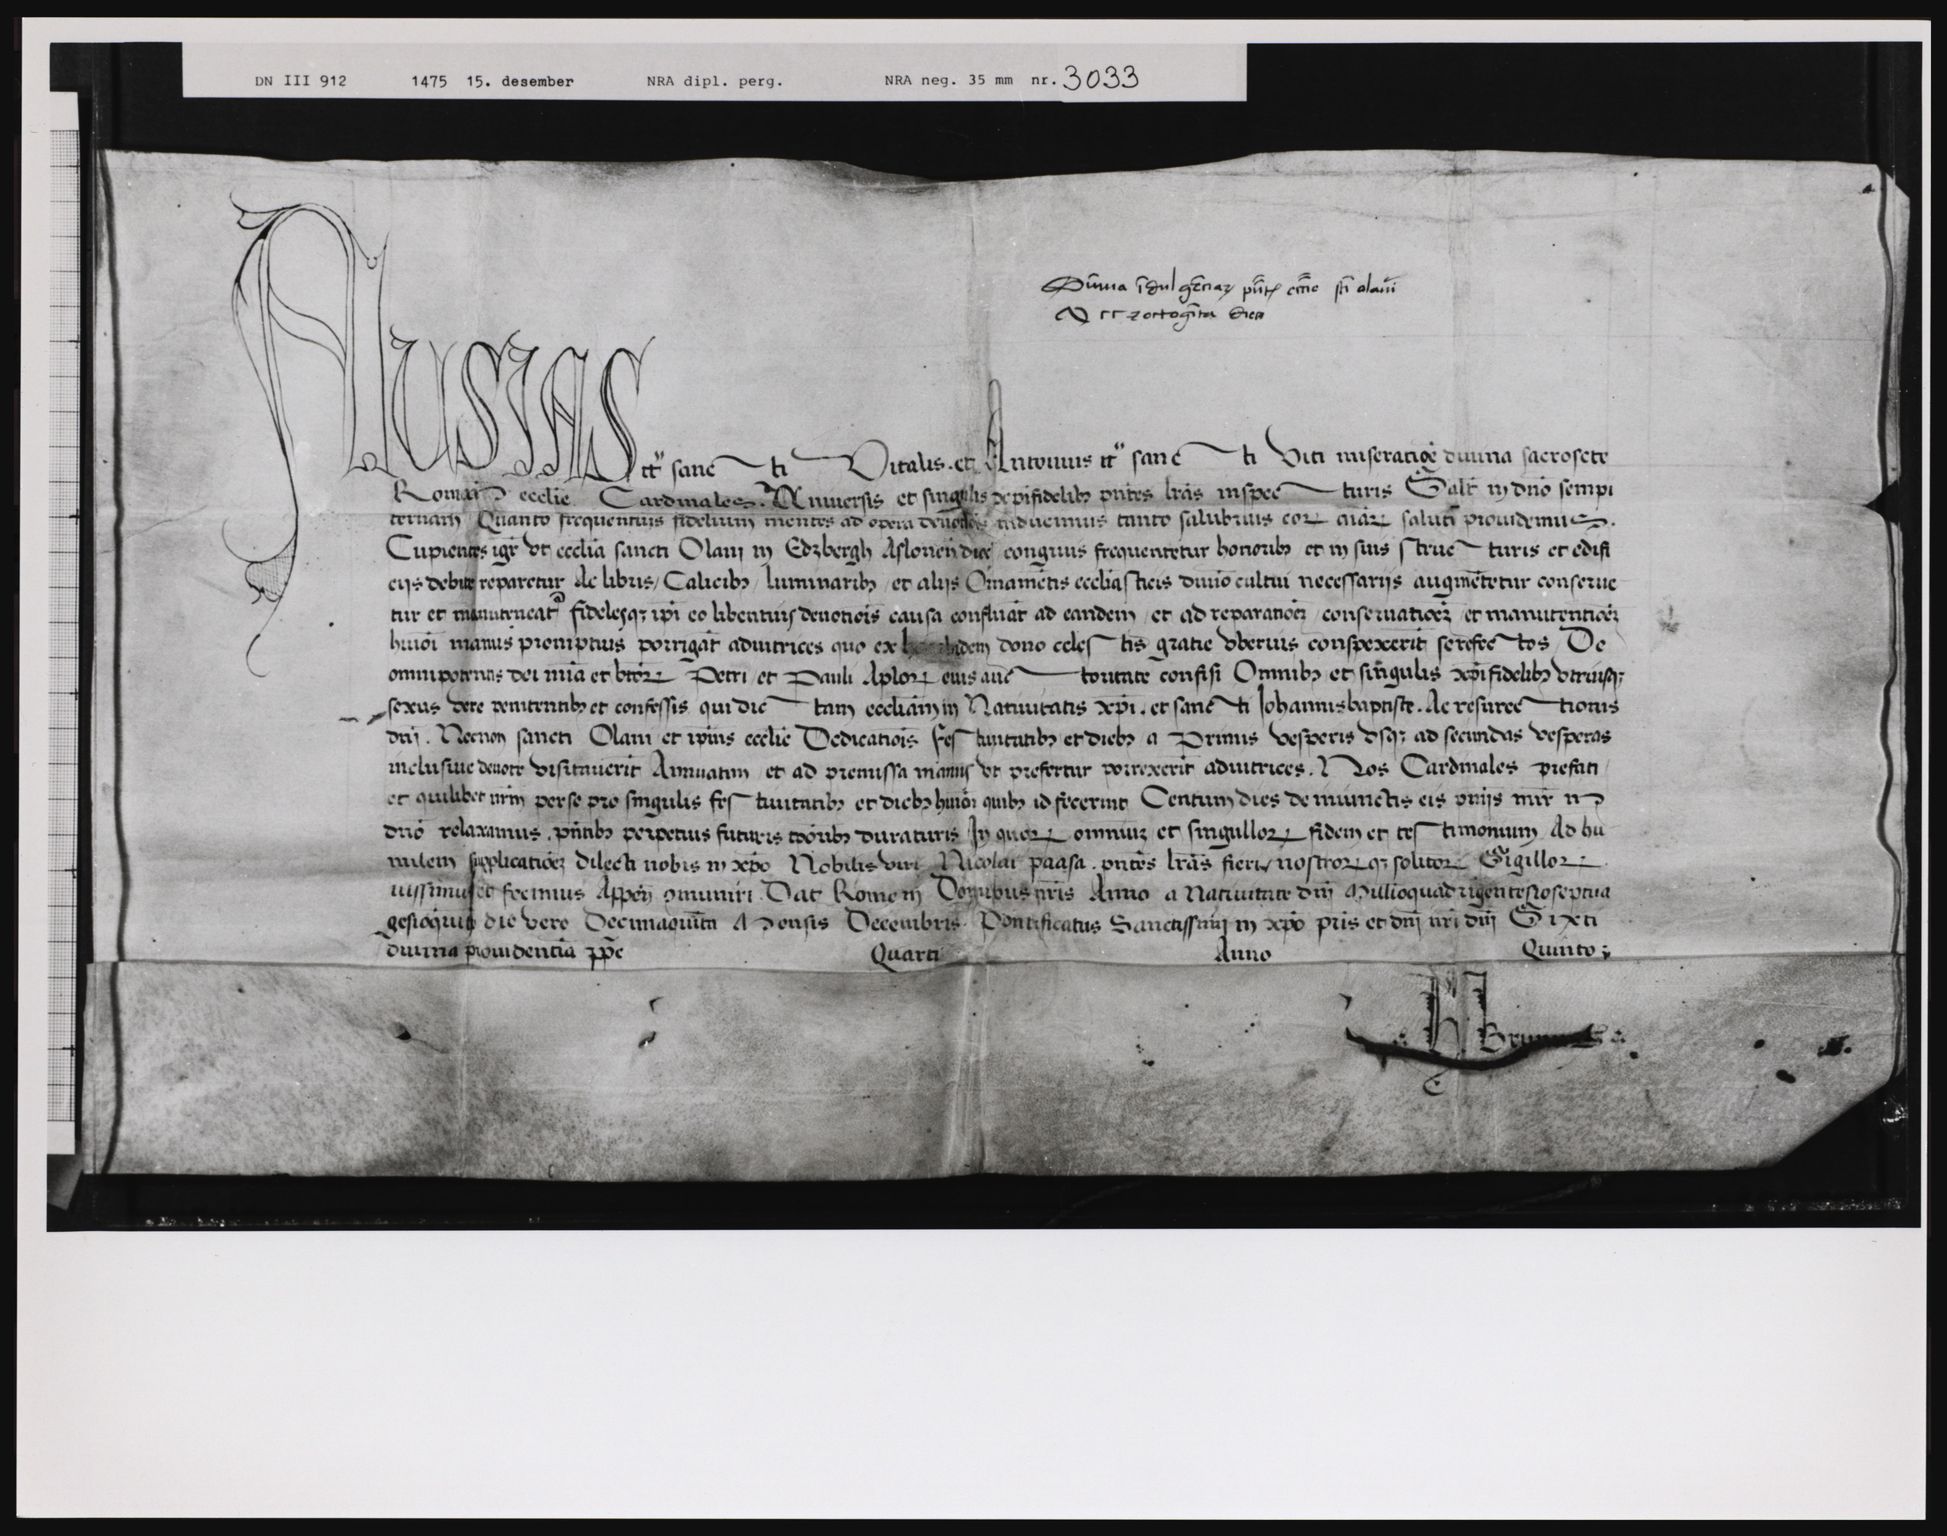 DN III 912 1475 15. desember NRA dipl. perg. NRA neg. 35 mm nr. 3033
Sūma īdulgēciaꝝ pn̄t ecc̄ie sc̄i olaui
cc ⁊ octogīta dies
AUSIAS tt sanc ti Vitalis et Antonius tt sanc ti Viti miseratiōe diuina sacrosc̄te
Roman̄ ecclie Cardinales. Vniuersis et singulis xp̄ifidelibꝫ pn̄tes lr̄as inspec turis Salt̄ in dn̄o sempi
ternam Quanto frequentius fidelium mentes ad opera deuotiōis inducimus tanto salubrius eoꝝ aīaꝝ saluti prouidemus.
Cupientes igr̄ vt ecclia sancti Olaui in Edzbergh Aslonen̄ dioc̄ congruis frequentetur honoribꝫ et in suis struc turis et edifi
cijs debite reparetur Ac libris / Calicibꝫ / luminaribꝫ / et alijs Or̄namētis eccliasticis diuīo cultui necessarijs augmētetur conserue
tur et manuteneatᷣ fidelesqꝫ ip̄i eo libentius deuotiōis causa confluāt ad eandem / et ad reparatiōeꝫ / conseruatiōeꝫ / et manutentiōeꝫ
huiōi manus promptius porrigāt adiutrices quo ex ibidem dono celes tis gratie vberius conspexerīt se refec tos / De
omnipotentis dei mīa et btōꝝ Petri et Pauli Aplōꝝ eius auc toritate confisi Omnibꝫ et singulis xp̄ifidelibꝫ vtriusqꝫ
sexus vere penitentibꝫ et confessis qui dic tam eccliam in Natiuitatis xp̄i. et sanc ti Johannisbaptiste. Ac resurec tionis
dn̄i. Necnon sancti Olaui et ip̄ius ecclie Dedicatiōis fes tiuitatibꝫ et diebꝫ a Primis vesperis vsqꝫ ad secundas vesperas
inclusiue deuote visitauerīt Annuatim / et ad premissa manus vt prefertur porrexerīt adiutrices. Nos Cardinales prefati /
et quilibet nr̄m per se pro singulis fes tiuitatibꝫ et diebꝫ huiōi quibꝫ id fecerint Centum dies de iniunctis eis pn̄ijs mīr in
dn̄o relaxamus. pn̄tibꝫ perpetuis futuris tp̄oribꝫ duraturis In quoꝝ omniuꝫ et singulloꝝ fidem et tes timonium Ad hu
milem supplicatiōeꝫ dilecti nobis in xp̄o Nobilis viri Nicolai paasa. pn̄tes lr̄as fieri / nostroꝝ qꝫ solitoꝝ Sigilloꝝ
iussimus et fecimus Appen̄ ꝯmuniri. Dat Rome in Domibus nr̄is Anno a Natiuitate dn̄i Millioquadrigentesīoseptua
gesīoquīto die vero Decimaquīta Mensis Decembris. Pontificatus Sanctissimi in xp̄o pr̄is et dn̄i nr̄i dn̄i Sixti
diuina prouidentia pp̄e Quarti Anno Quinto